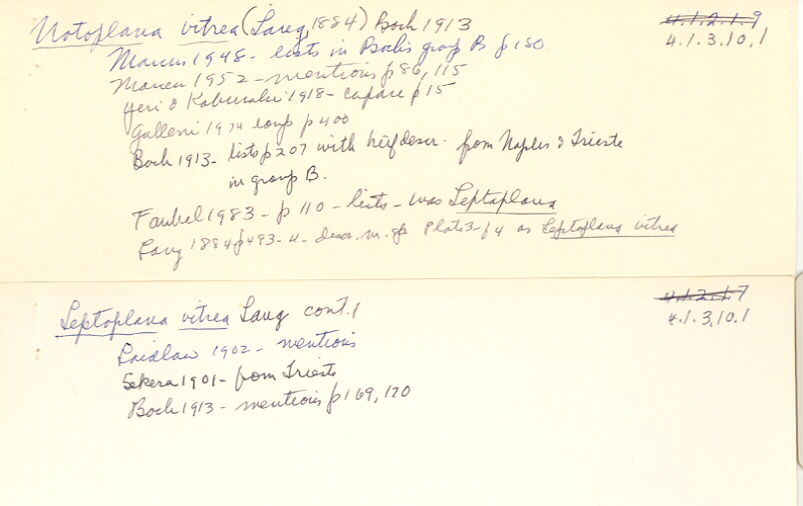 Notoplana vitrea (Lang, 1884) Bock 1913
4.1.2.1.9
4.1.3.10.1
Marcus 1948 - lists in Bocks group B p 180.
Marcu 1952 - mentions p 86, 115
Yeri & Kaburaki 1918 - compare p 15
Galleni 1974 comp p 400
Bock 1913 - lists p 207 with brief descr. from Naples & Trieste
in group B.
Faubel 1983 - p 110 - lists - was Leptoplana
Lang 1884 p 493-4 - descr. n. sp. Plat 3 - f 4 as Leptoplana vitrea
Leptoplana vitrea Lang cont. 1
4.1.2.1.7
4.1.3.10.1
Laidlaw 1902 - mentions
Sekera 1901 - from Trieste
Bock 1913 - mentions p 169, 170